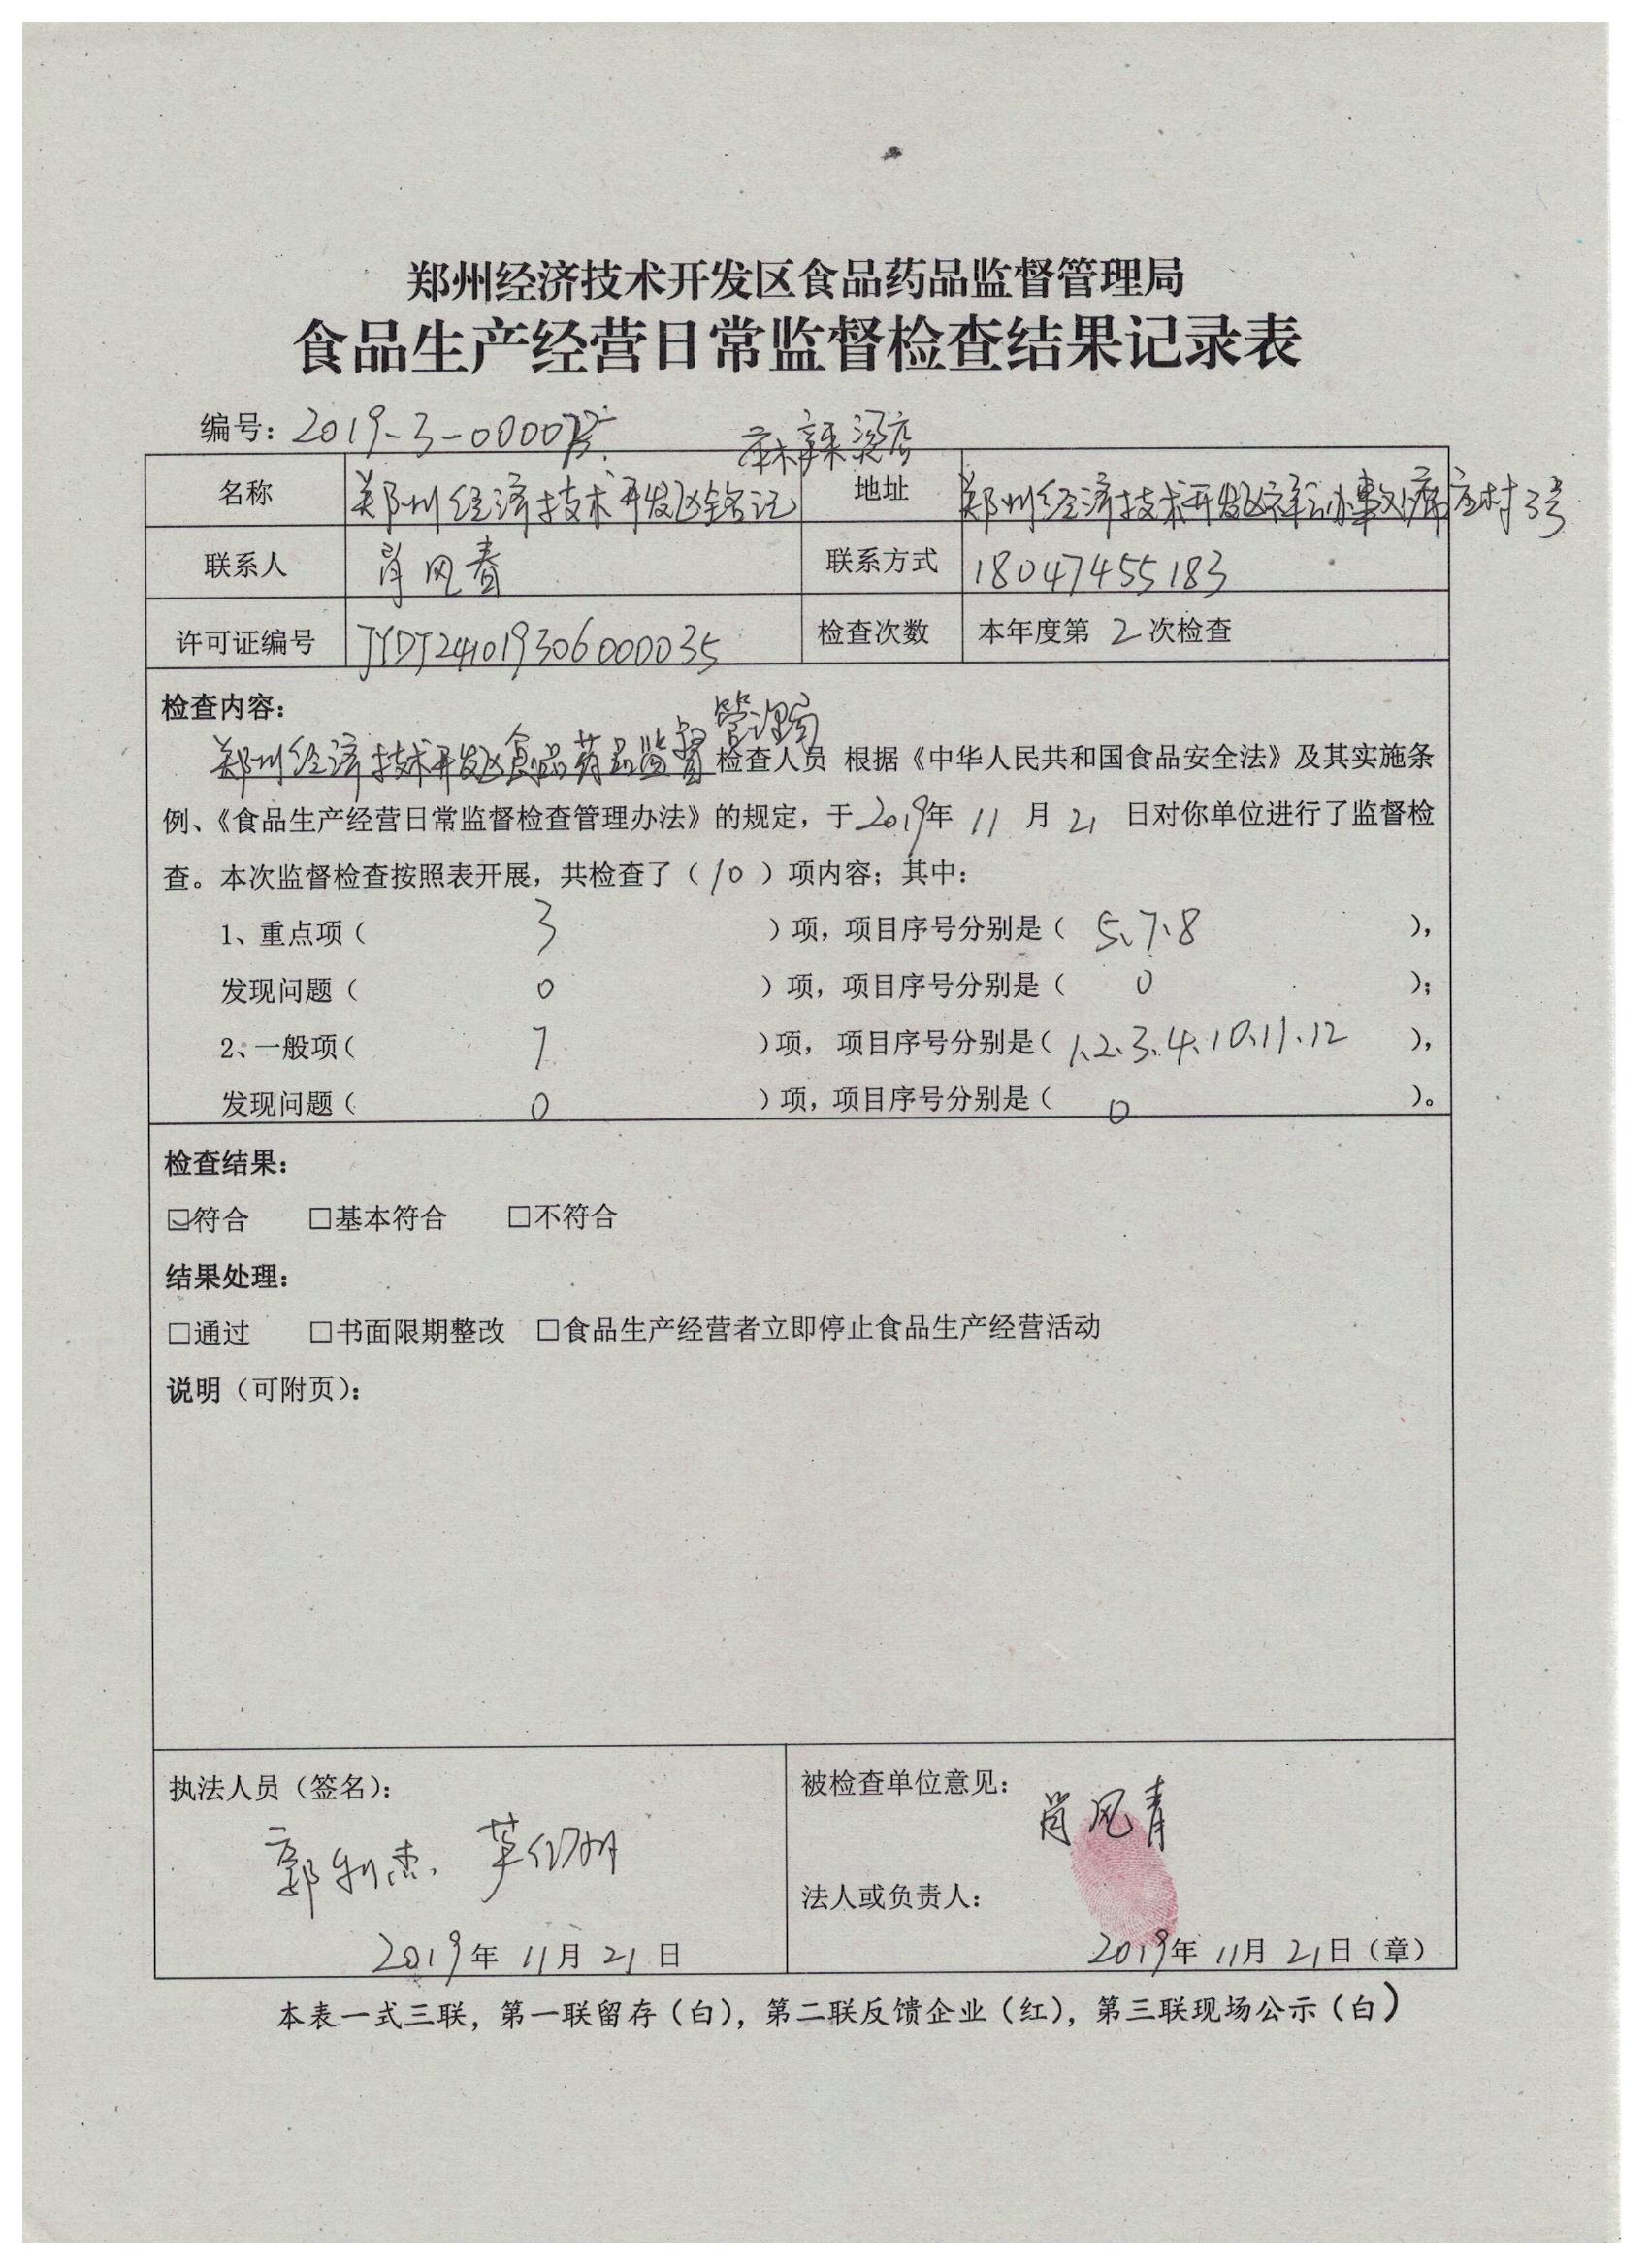 郑州经济技术开发区食品药品监督管理局
食品生产经营日常监督检查结果记录表
编号：2019-3-0000
麻辣烫店
名称 郑州经济技术开发区铭记 地址 郑州经济技术开发区祥云办事处 庄村3号
联系人 肖风春 联系方式 18047455183
许可证编号 JYDJ2410193060000035 检查次数 本年度第 2 次检查
检查内容：
管理局
郑州经济技术开发区食品药品监督 检查人员 根据《中华人民共和国食品安全法》及其实施条
例、《食品生产经营日常监督检查管理办法》的规定，于2019年 11 月 21 日对你单位进行了监督检
查。本次监督检查按照表开展，共检查了（10）项内容；其中：
1、重点项（ 3 ）项，项目序号分别是（ 5、7、8 ），
发现问题（ 0 ）项，项目序号分别是（ 0 ）；
2、一般项（ 7 ）项，项目序号分别是（ 1、2、3、4、10、11、12 ），
发现问题（ 0 ）项，项目序号分别是（ 0 ）。
检查结果：
☑符合 □基本符合 □不符合
结果处理：
□通过 □书面限期整改 □食品生产经营者立即停止食品生产经营活动
说明（可附页）：
执法人员（签名）： 被检查单位意见：
肖风青
郭利杰、
法人或负责人：
2019年 11月 21 日 2019年 11月 21日（章）
本表一式三联，第一联留存（白），第二联反馈企业（红），第三联现场公示（白）